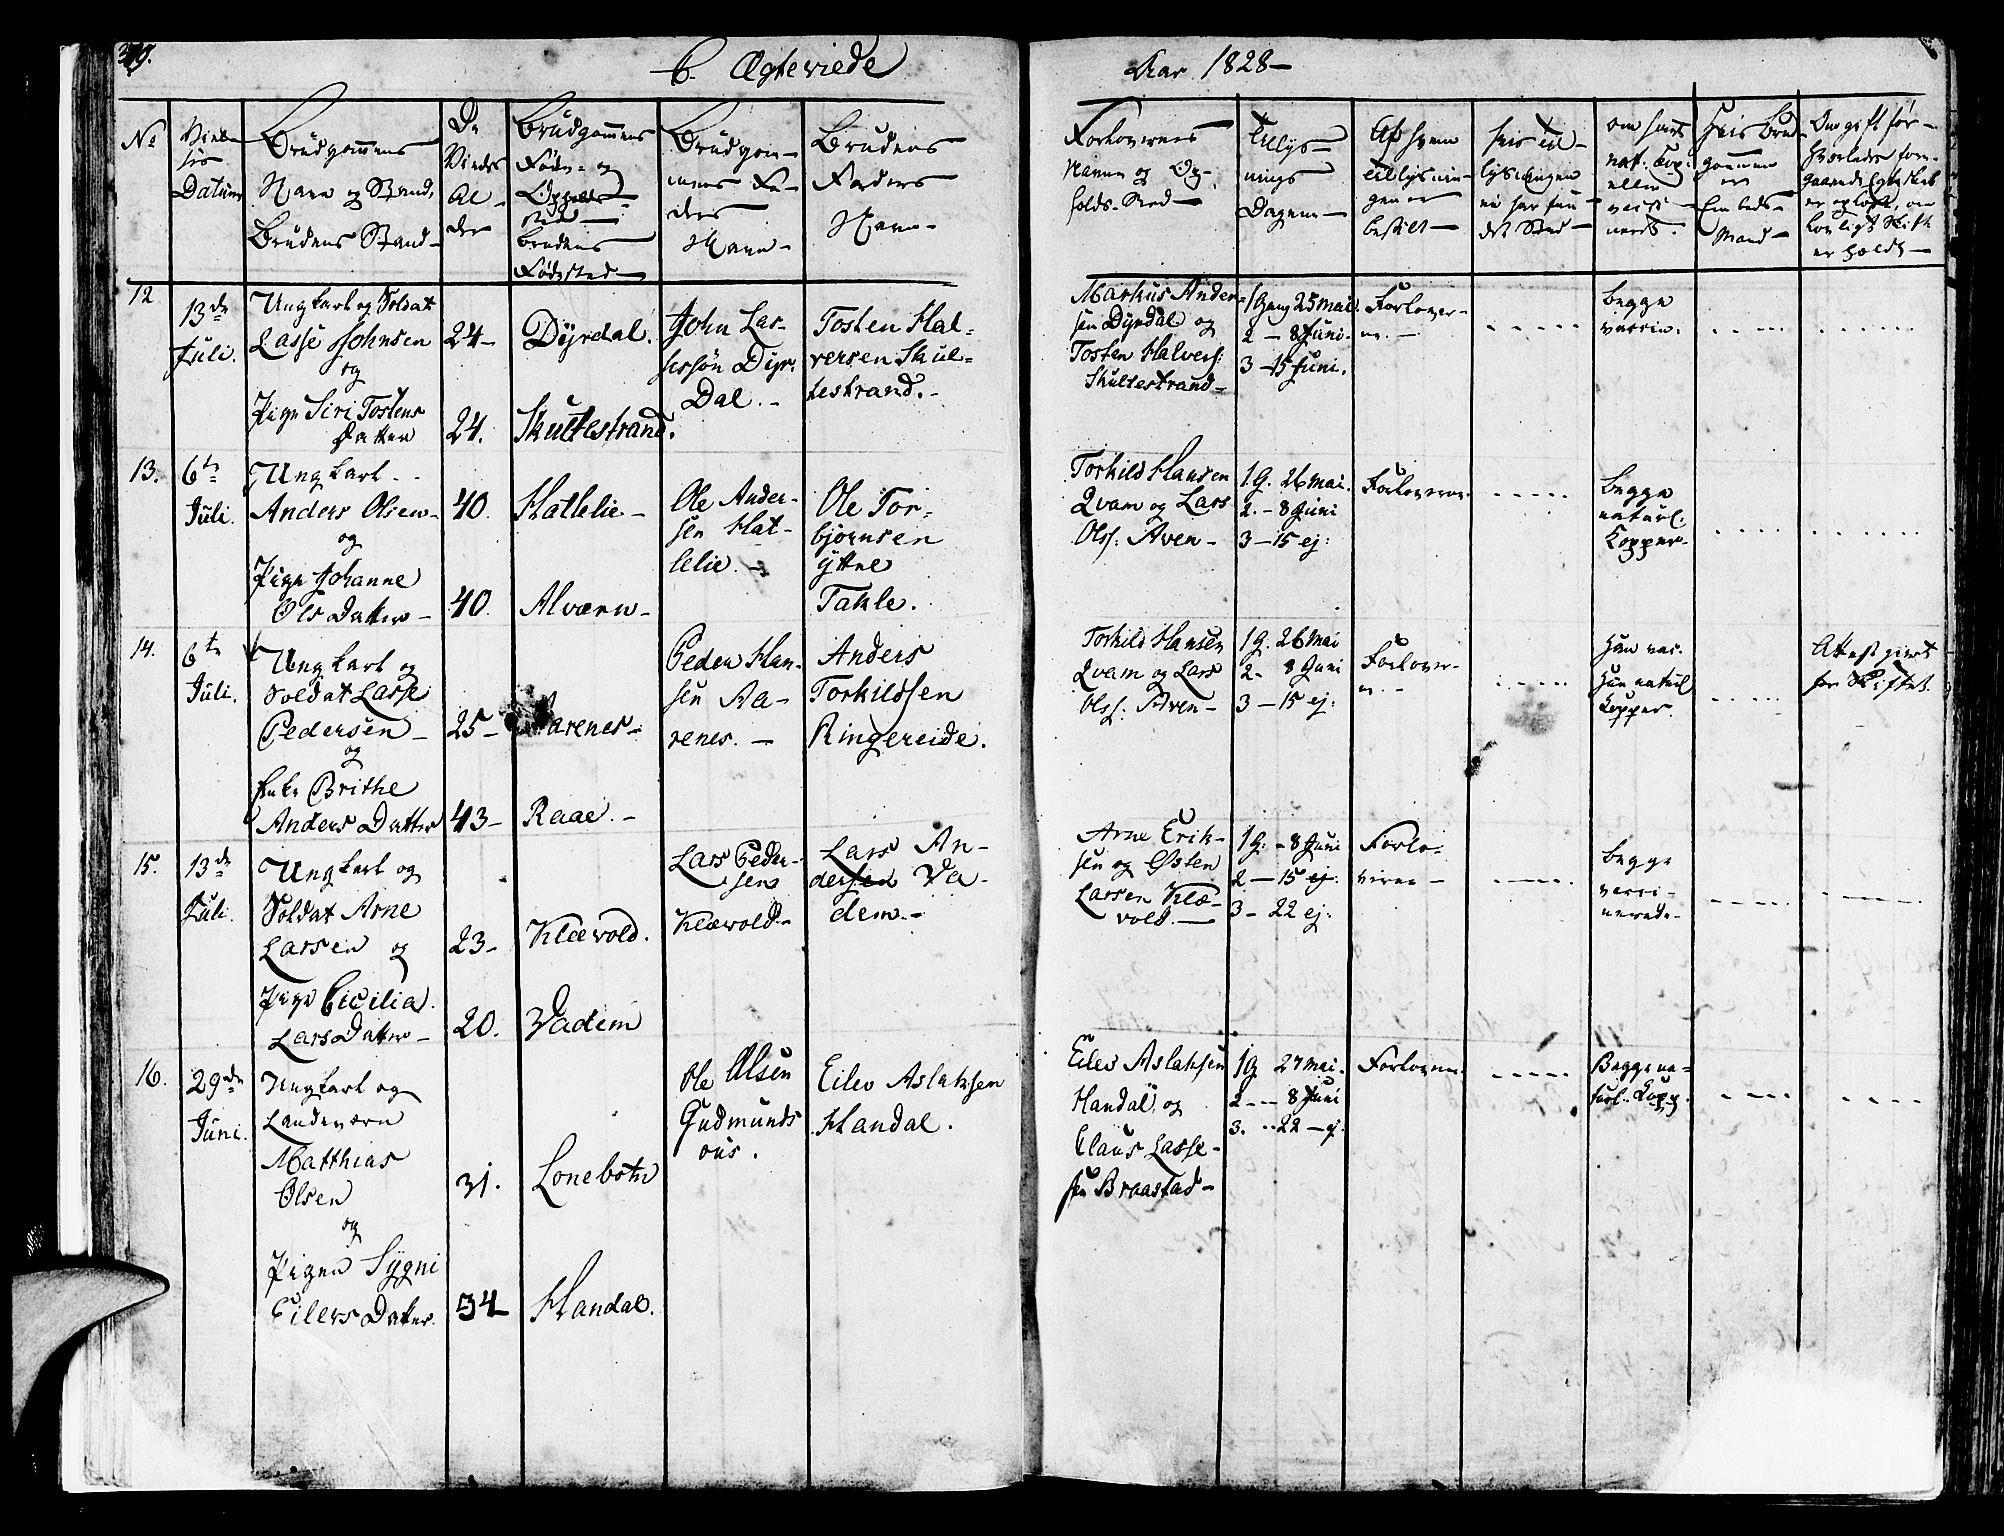 C. Ægteviede
Aar 1828
No
Vielsis
Datum
Brudgommens
Navn og Stand,
Brudens Stand
De
Viedes
Al-
der
Brudgommens
Føde- og
Opholds-
sted
Brudens
Fødested
Brudgom-
mens Fa-
ders
Navn
Brudens
Faders
Navn
Forlovernes
Navne og Op-
holds-Sted
Tillys-
nings
Dagene
Af hvem
tillysnin-
gen er
bestilt
Hvis til-
lysningen
ei har fun-
det Sted
om havt
nat. Kop.
eller
vacci-
neret.
Hvis Brud-
gommen
er
Em beds-
Mand
Om gift før-
hvorledes fore-
gaaende Egteskab
er opløst, om
lovligt Skifte
er holdt
12
13de
Juli.
Ungkarl og Soldat
Lasse Johnsen
og
Pige Siri Tostens
Datter
24
24.
Dyrdal.
Skultestrand.
John Las-
sessøn Dyr-
Dal.
Tosten Hal-
versen Skul-
testrand.
Markus Ander-
sen Dyrdal og
Tosten Halvers:
Skultestrand
1 Gang 25 Mai.
2 — 8 Juni.
3 — 15 Juni.
Forlover-
ne.
begge
vaccin.
13.
6te
Juli.
Ungkarl
Anders Olsen
og
Pige Johanne
Ols Datter
40.
40.
Hatlelie
Alværn
Ole Ander-
sen Hat-
lelie.
Ole Tor-
bjørnsen
Yttre
Takle.
Torkild Hansen
Qvam og Lars
Olss: Aven
1 G. 26 Mai.
2. — 8 Juni
3 — 15 ej:
Forloverne.
begge
naturl.
Kopper
14.
6te
Juli.
Ungkarl og
Soldat Lasse
Pedersen
og
Enke Brithe
Anders Datter
25
43
Aarenes
Raae.
Peder Han-
sen Aa-
renes.
Anders
Torkildsen
Ringereide.
Torkild Hansen
Qvam og Lars
Olss: Aven
1 G. 26 Mai
2 - 8 Juni
3 — 15 ej:
Forlover-
ne.
Han vac.
Hun naturl
Kopper.
Attest givet
for Skiftet.
15.
13de
Juli.
Ungkarl og
Soldat Arne
Larsen og
Pige Cicilia
Lars Datter
23
20.
Klævold.
Vadem
Lars Peder-
sen
Klævold
Lars An-
dersen Va-
dem.
Arne Erik-
sen og Østen
Larsen Klæ-
vold.
1 G. - 8 Juni
2 — 15 ej.
3 - 22 ej:
Forlo-
verne
begge
vacci-
nerede
16.
29de
Juni.
Ungkarl og
Landeværn
Matthias
Olsen
og
Pigen Sygni
Eilevs Datter.
31.
34
Lonebotn
Handal.
Ole Olsen
Gudmunds
Eilev Aslaksen
Handal.
Eilev Aslaksen
Handal, og
Claus Lasse-
sen Braastad
1 G 27 Mai.
2 -- 8 Juni
3. -- 22 - ej.
Forloverne.
Begge na-
turl. Kopp.